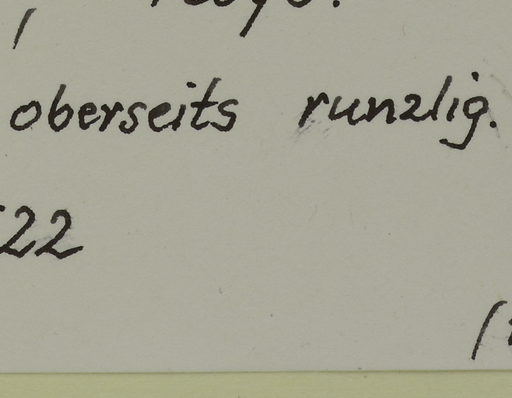 oberseits runzlig.
22